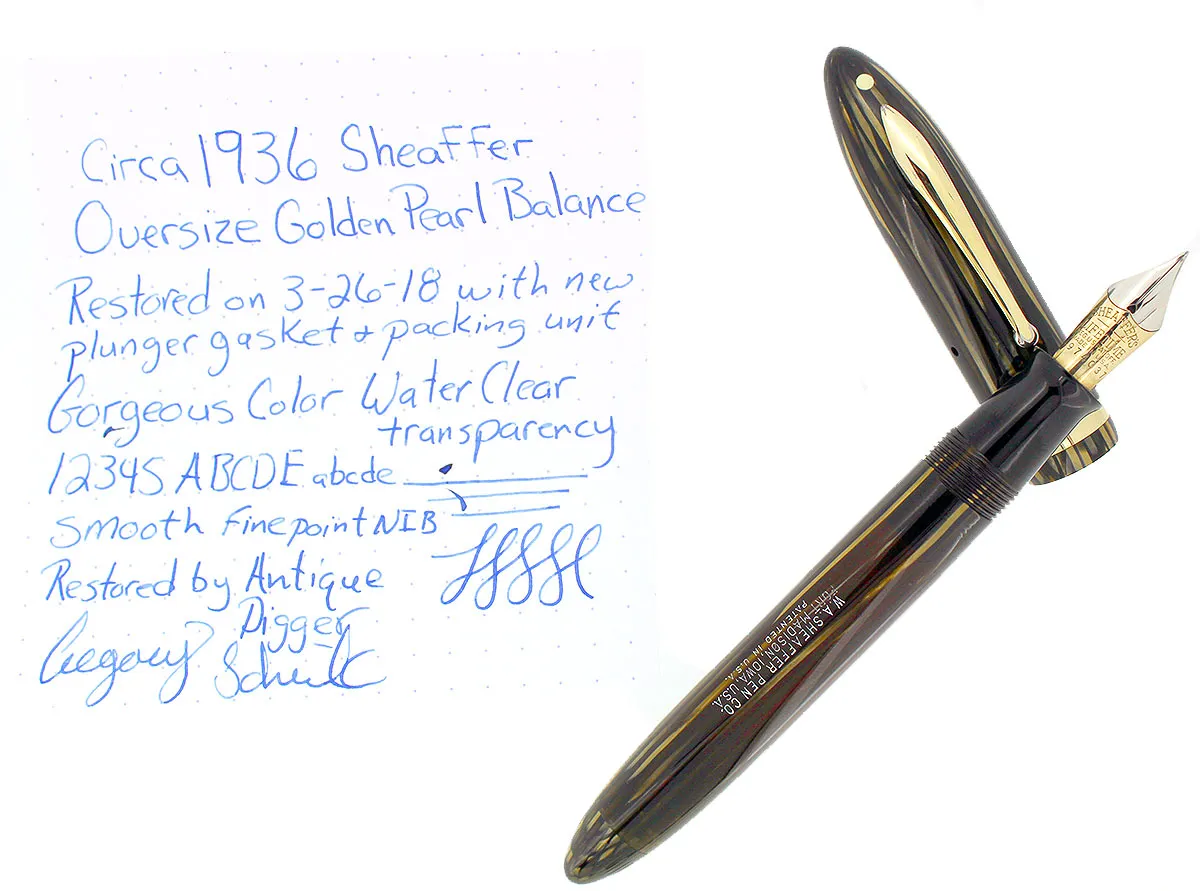 Circa 1936 Sheaffer
Oversize Golden Pearl Balance
Restored on 3-26-18 with new
plunger gasket & packing unit
Gorgeous Color Water Clear
transparency
12345 ABCDE abcde
Smooth Fine point NIB
Restored by Antique
Digger
Gregory
SHEAFFER'S
LIFETIME
W.A. SHEAFFER PEN CO.
FORT MADISON, IOWA, U.S.A.
PATENTED IN U.S.A.